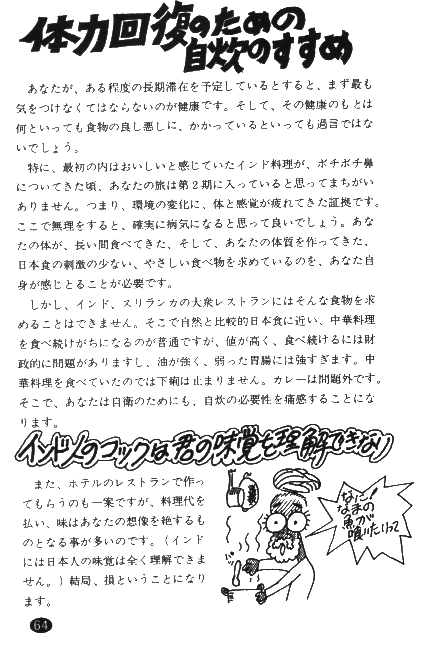 体力回復のための
自炊のすすめ
あなたが、ある程度の長期滞在を予定しているとすると、まず最も
気をつけなくてはならないのが健康です。そして、その健康のもとは
何といっても食物の良し悪しに、かかっているといっても過言ではな
いでしょう。
特に、最初の内はおいしいと感じていたインド料理が、ボチボチ鼻
についてきた頃、あなたの旅は第2期に入っていると思ってまちがい
ありません。つまり、環境の変化に、体と感覚が疲れてきた証拠です。
ここで無理をすると、確実に病気になると思って良いでしょう。あな
たの体が、長い間食べてきた、そして、あなたの体質を作ってきた、
日本食の刺激の少ない、やさしい食べ物を求めているのを、あなた自
身が感じとることが必要です。
しかし、インド、スリランカの大衆レストランにはそんな食物を求
めることはできません。そこで自然と比較的日本食に近い、中華料理
を食べ続けがちになるのが普通ですが、値が高く、食べ続けるには財
政的に問題がありますし、油が強く、弱った胃腸には強すぎます。中
華料理を食べていたのでは下痢は止まりません。カレーは問題外です。
そこで、あなたは自衛のためにも、自炊の必要性を痛感することにな
ります。
インド人のコックは君の味覚を理解できない
また、ホテルのレストランで作っ
てもらうのも一案ですが、料理代を
払い、味はあなたの想像を絶するも
のとなる事が多いのです。(インド
には日本人の味覚は全く理解できま
せん。)結局、損ということになり
ます。
なに!
なまの
魚が
喰いたいって
64